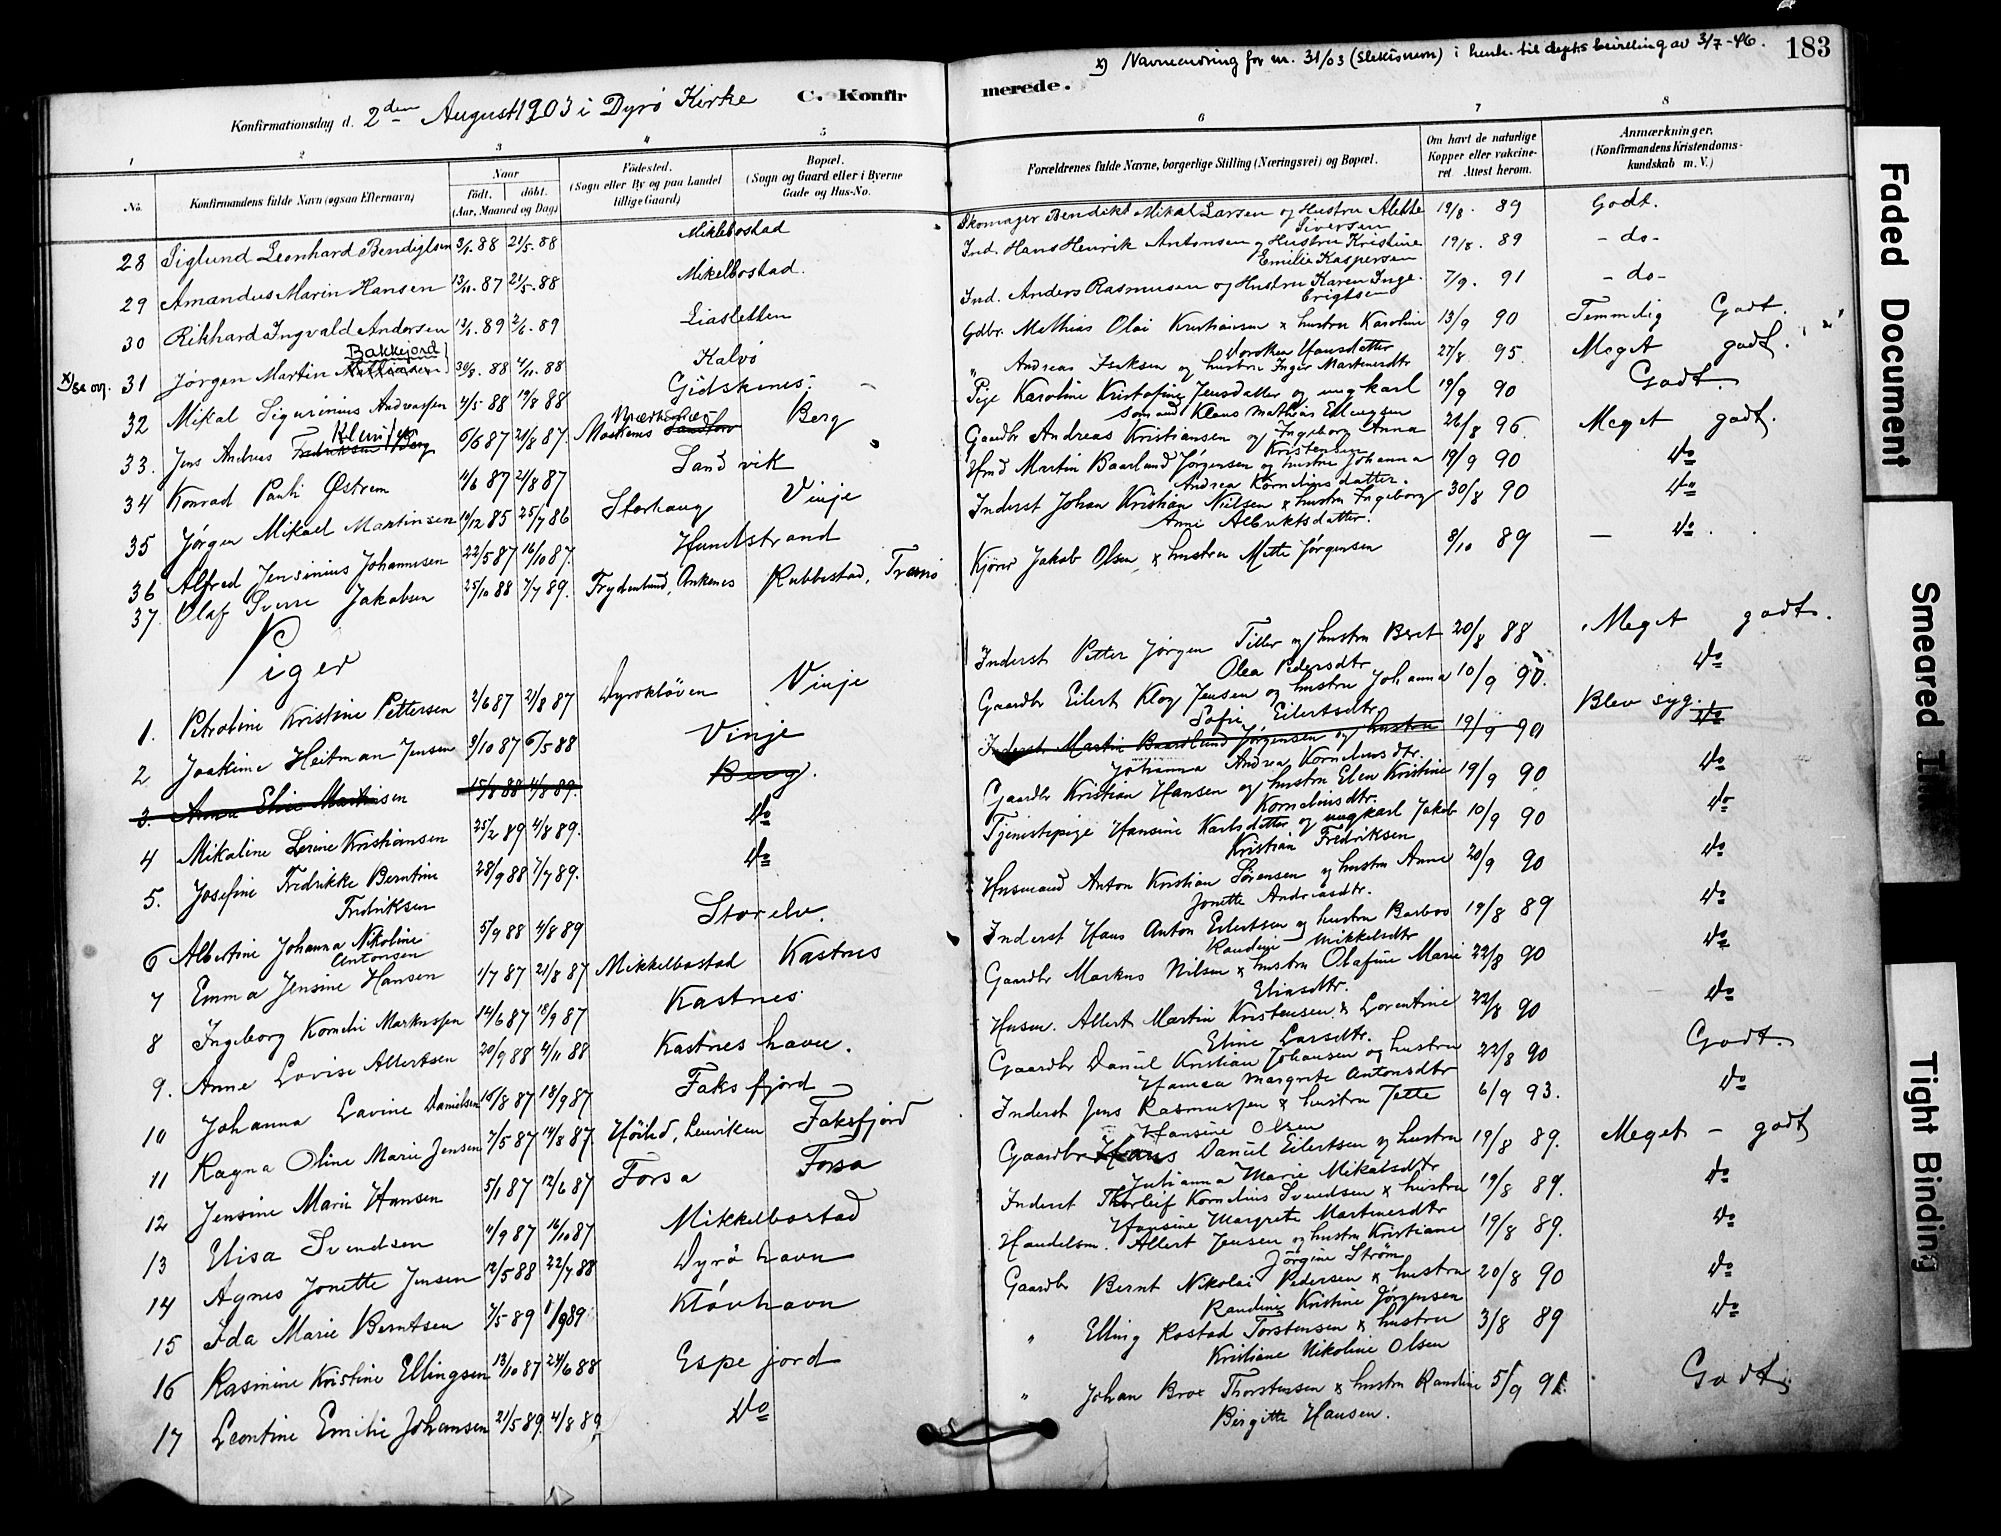 x) Navneendring for nr. 31/03 (slektsnavn) i henh. til depts bevilling av 3/7-46.
183
Konfirmationsdag d. 2den August 1903 i Dyrø Kirke
C. Konfirmerede.
1 2 3 4 5 6 7 8
No.
Konfirmandens fulde Navn (ogsaa Efternavn)
Naar
født. døbt.
(Aar, Maaned og Dag)
Fødested.
(Sogn eller By og paa Landet
tillige Gaard)
Bopæl.
(Sogn og Gaard eller i Byerne
Gade og Hus-No.
Forældrenes fulde Navne, borgerlige Stilling (Næringsvei) og Bopæl.
Om havt de naturlige
Kopper eller vakcine-
ret. Attest herom.
Anmærkninger.
(Konfirmandens Kristendoms-
kundskab m. V.)
28 Siglund Leonhard Bendigtsen 88 21/5.88 Miklebostad Skomager Bendikt Mikal Larsen og Hustru Alette Siversen 19/8. 89 Godt.
29 Amandus Marin Hansen 87 21/5.88 Mikelbostad. Ind. Hans Henrik Antonsen og Hustru Kristine Emilie Kaspersen 19/8. 89 - do -
30 Rikhard Ingvald Andersen 89 89 Liasletten Ind. Anders Rasmusen og Hustru Karen Inge- Erigtsen 7/9. 91 - do -
x) se ov. 31 Jørgen Martin Bakkejord 30/8. 88 4/11. 88 Kalvø Gdbr. Mathias Olai Kristiansen x hustru Karoline Dorothea Hansdatter 13/9 90 Temmelig Godt.
32 Mikal Sigurinius Andreassen 4/5 88 19/8 88 Gidskenes. " Andreas Isaksen og hustru Inger Martensdtr 27/8 95. Meget godt.
33. Jens Andreas Fredriksen Berg 5/6 87 21/8 87 Berg Pige Karoline Kristofine Jensdatter og ungkarl sømand Klaus Mathias Ellingsen 19/9 90 Godt
34 Konrad Pauli Østrem 4/6 87 21/8 87 Sandvik Gaardbr Andreas Kristiansen og Ingeborg Anna Kristensen 26/8 96. Meget godt.
35 Jørgen Mikael Martinsen 19/12 85 25/7 86 Storhaug Vinje Hmd Martin Baarlund Jørgensen og hustru Johanna Andrea Kornelius datter. 19/9 90 do
36 Alfred Jensinius Johannesen 22/5 87 16/10 87. Hundstrand Inderst Johan Kristian Nielsen x hustru Ingeborg Anne Albriktsdatter. 30/8 90 do
37. Olaf Sverre Jakobsen 25/10 88 7/7 89. Frydenlund, Ankenes Rubbestad, Tranø Kjører Jakob Olsen x hustru Mette Jørgensen 8/10 89 - do
Piger
1. Petroline Kristine Pettersen 2/6 87 21/8 87 Dyrøkløven Vinje Inderst Petter Jørgen Tiller og hustru Berit Olea Pedersdtr 20/8 88 Meget godt.
2 Joakime Heitman Jensen 9/10 87 6/5 88 Vinje Gaardbr Eilert Klog Jensen og hustru Johanna Sofie Eilertsdtr 10/9 90. do
3. Anne Elise Martinsen 15/8 88 4/8 89. Berg. Inderst Martin Baardlund Jørgensen og hustru Johanna Andrea Kornelius dtr. 19/9 90 Blev syg. do
4 Mikaline Lerine Kristiansen 25/2 89 4/8 89. do Gaardbr Kristian Hansen og hustru Elen Kristine Kornelius dtr. 19/9 90 do
5. Josefine Fredrikke Berntine Fredriksen 28/9 88 7/7 89. do Tjenestepige Hansine Karlsdatter og ungkarl Jakob Kristian Fredriksen 10/9 90 do
6 Albertine Johanna Nikoline Antonsen 5/9 88 4/8 89 Storelv. Husmand Anton Kristian Sørensen og hustru Anne Jonette Andreasdtr. 20/9 90 do
7 Emma Jensine Hansen 1/7 87 21/8 87 Mikkelbostad Kastnes Inderst Hans Anton Eilertsen og hustru Barbro Randine Mikkelsdtr 19/8 89 do
8 Ingeborg Kornelie Markussen 14/6 87 18/9 87 Kastnes Gaardbr Markus Nilsen x hustru Olafine Marie Eliasdtr. 22/8 90 do
9. Anne Lovise Albertsen 20/9 88 4/11 88 Kastneshavn. Husm. Albert Martin Kristensen x Lorentine Eline Larsdtr. 22/8 90 do
10 Johanna Lavine Danielsen 15/8 87 18/9 87 Faksfjord Gaardbr Daniel Kristian Johansen og hustru Hanna Margrete Antonsdtr 22/8 90 Godt.
11 Ragna Oline Marie Jensen 7/5 87 14/8 87. Høilid, Lenviken Faksfjord Inderst Jens Rasmussen x hustru Jette Hansine Olsen 6/9 93. do
12 Jensine Marie Hansen 5/1 87 12/6 87 Forsa Forsa Gaardbr Hans Daniel Eilertsen og hustru Julianna Marie Mikalsdtr 19/8 89. Meget - godt
13 Elisa Svendsen 4/9 87 16/10 87 Mikkelbostad Inderst Thorleif Kornelius Svendsen x hustru Hansine Margrete Martinesdtr 19/8 89. do
14 Agnes Jonette Jensen 12/5 88 22/7 88 Dyrøhavn Handelsm. Albert Jensen og hustru Kristiane Jørgine Strøm 19/8 89. do
15 Ida Marie Berntsen 7/5 89 1/9 89 Kløvhavn Gaardbr Bernt Nikolai Pedersen x hustru Randine Kristine Jørgensen 20/8 90 do
16 Rasmine Kristine Ellingsen 13/10 87 24/6 88 Espejord " Elling Rostad Torstensen x hustru Kristiane Nikoline Olsen 3/8 89 do
17 Leontine Emilie Johansen 21/5 89. 4/8 89 do " Johan Brox Thorstensen x hustru Randine Birgitte Hansen. 5/9 91. Godt.
Faded Document
Smeared Ink
Tight Binding